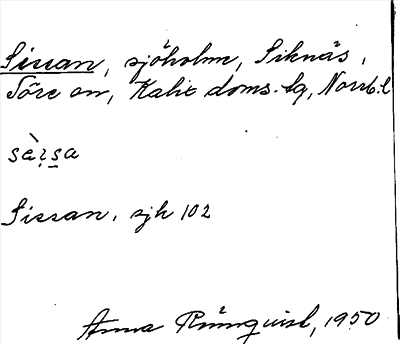 Sissan, sjöholme, Siknäs,
Töre sn, Kalix doms.lg, Norrb.l
sèi̯s̱a
Sissan, sjh 102
Anna Rönnqvist, 1950